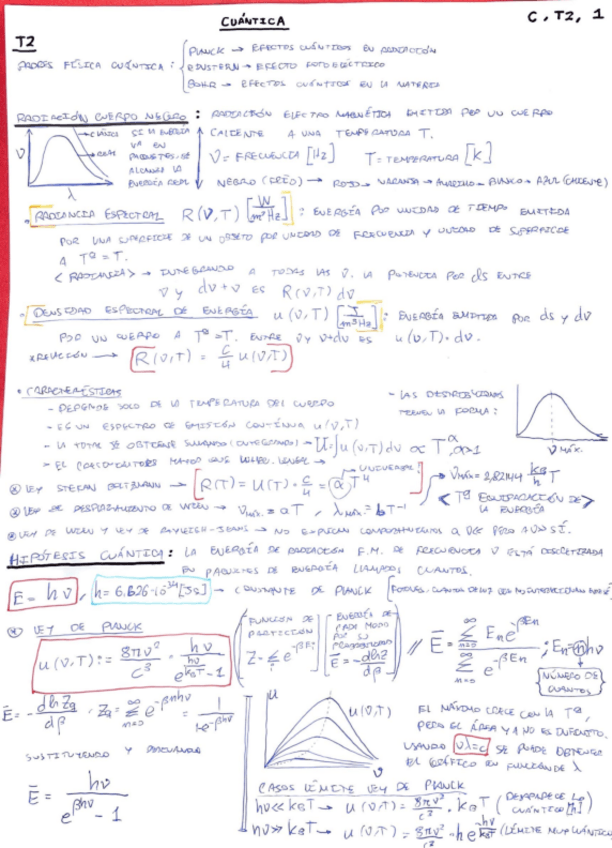 CUÁNTICA
C, T2, 1
T2
PADRES FÍSICA CUÁNTICA:
PLANCK → EFECTOS CUÁNTICOS EN RADIACIÓN
EINSTEIN → EFECTO FOTOELÉCTRICO
BOHR → EFECTOS CUÁNTICOS EN LA MATERIA
RADIACIÓN CUERPO NEGRO: RADIACIÓN ELECTROMAGNÉTICA EMITIDA POR UN CUERPO
CALIENTE A UNA TEMPERATURA T.
CLÁSICA
REAL
SI LA ENERGÍA
VA EN
PAQUETES, SE
ALCANZA LA
ENERGÍA REAL
ν
λ
ν = FRECUENCIA [Hz] T = TEMPERATURA [K]
NEGRO (FRÍO) → ROJO → NARANJA → AMARILLO → BLANCO → AZUL (CALIENTE)
• RADIANCIA ESPECTRAL R(ν,T) [W/m²Hz]: ENERGÍA POR UNIDAD DE TIEMPO EMITIDA
POR UNA SUPERFICIE DE UN OBJETO POR UNIDAD DE FRECUENCIA Y UNIDAD DE SUPERFICIE
A Tª = T.
<RADIANCIA> → INTEGRANDO A TODAS LAS ν. LA POTENCIA POR ds ENTRE
ν y dν+ν ES R(ν,T)dν
• DENSIDAD ESPECTRAL DE ENERGÍA u(ν,T) [J/m³Hz]: ENERGÍA EMITIDA POR ds y dν
POR UN CUERPO A Tª=T. ENTRE ν y ν+dν ES u(ν,T)·dν.
*RELACIÓN → R(ν,T) = c/4 u(ν,T)
• CARACTERÍSTICAS
- DEPENDE SOLO DE LA TEMPERATURA DEL CUERPO
- ES UN ESPECTRO DE EMISIÓN CONTINUA u(ν,T)
- LA TOTAL SE OBTIENE SUMANDO (INTEGRANDO) → U=∫u(ν,T)dν ∝ T^α, α>1
- LAS DISTRIBUCIONES
TIENEN LA FORMA:
ν MÁX.
UNIVERSAL!
LEY STEFAN BOLTZMANN → R(T) = U(T)·c/4 = αT⁴
νmáx = 2,82144 kB/h T
LEY DE DESPLAZAMIENTO DE WIEN → νmáx. = aT, λmáx. = bT⁻¹
<Tª EQUIPARTICIÓN DE LA ENERGÍA>
LEY DE WIEN Y LEY DE RAYLEIGH-JEANS → NO EXPLICAN
HIPÓTESIS CUÁNTICA: LA ENERGÍA DE RADIACIÓN E.M. DE FRECUENCIA ν ESTÁ DISCRETIZADA
EN PAQUETES DE ENERGÍA LLAMADOS CUANTOS.
E = hν, h = 6.626·10⁻³⁴[Js] → CONSTANTE DE PLANCK
LEY DE PLANCK
u(ν,T) := 8πν²/c³ · hν/(e^(hν/kBT) - 1)
FUNCIÓN DE
PARTICIÓN
Z = Σ e^(-βEi)
ENERGÍA DE
CADA MODO
POR SU
Ē = -dlnZ/dβ
Ē = Σ(n=0,∞) En e^(-βEn) / Σ(n=0,∞) e^(-βEn); En = nhν
NÚMERO DE
CUANTOS
Ē = -dlnZ/dβ, Z = Σ(n=0,∞) e^(-βnhν) = 1/(1-e^(-βhν))
SUSTITUYENDO Y
Ē = hν/(e^(βhν) - 1)
u
u(ν,T)
ν
EL MÁXIMO CRECE CON LA Tª,
PERO EL ÁREA YA NO ES INFINITO.
USANDO νλ=c SE PUEDE OBTENER
EL GRÁFICO EN FUNCIÓN DE λ
CASOS LÍMITE LEY DE PLANCK
hν << kBT → u(ν,T) = 8πν²/c³ · kBT (DESAPARECE LO CUÁNTICO [h])
hν >> kBT → u(ν,T) = 8πν³/c³ · h e^(-hν/kBT) (LÍMITE MUY CUÁNTICO)